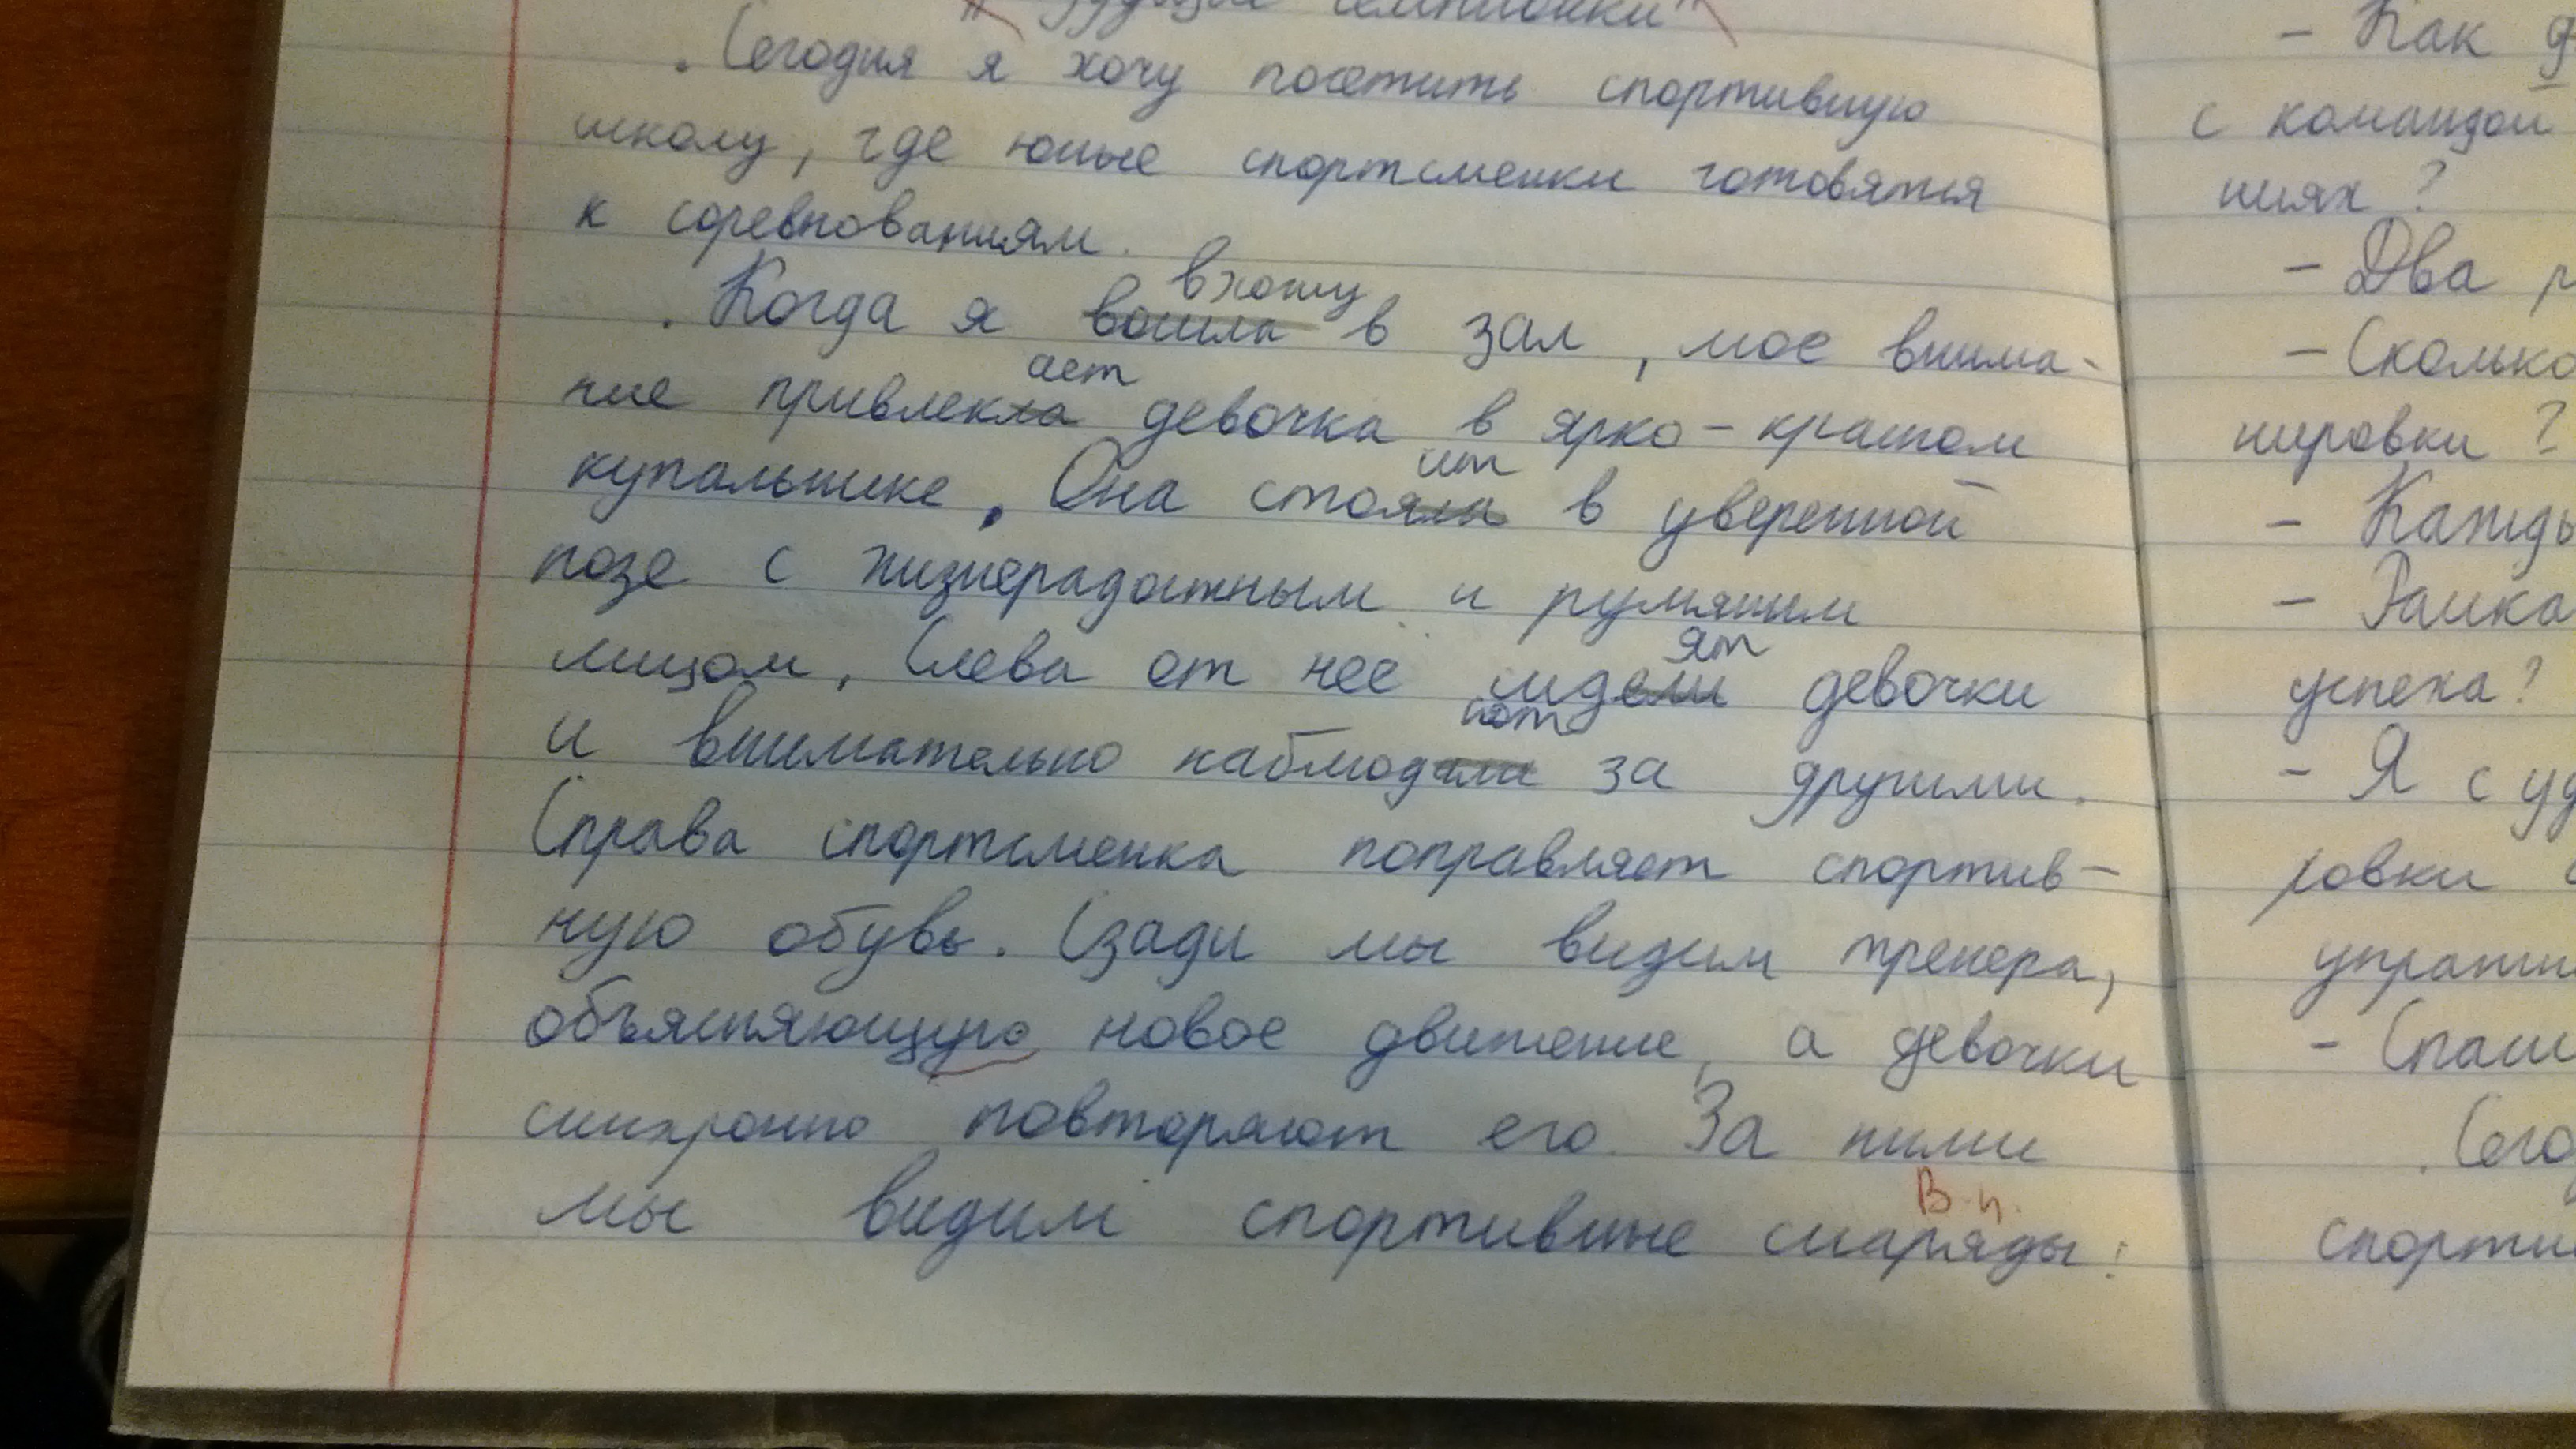 "Будущие чемпионки"
Сегодня я хочу посетить спортивную
школу, где юные спортсменки готовятся
к соревнованиям.
вхожу
Когда я вошла в зал, мое внима-
ает
ние привлекла девочка в ярко-красном
купальнике. Она стояла в уверенной
ит
позе с жизнерадостным и румяным
лицом. Слева от нее сидели девочки
ят
и внимательно наблюдали за другими.
ют
Справа спортсменка поправляет спортив-
ную обувь. Сзади мы видим тренера,
объясняющую новое движение, а девочки
синхронно повторяют его. За ними
мы видим спортивные снаряды:
В.п.
- Как
с командой
ниях?
- Два
- Сколько
нировки?
- Кажды
-
успеха?
- Я с уд
ровки
упражн
-
спорти